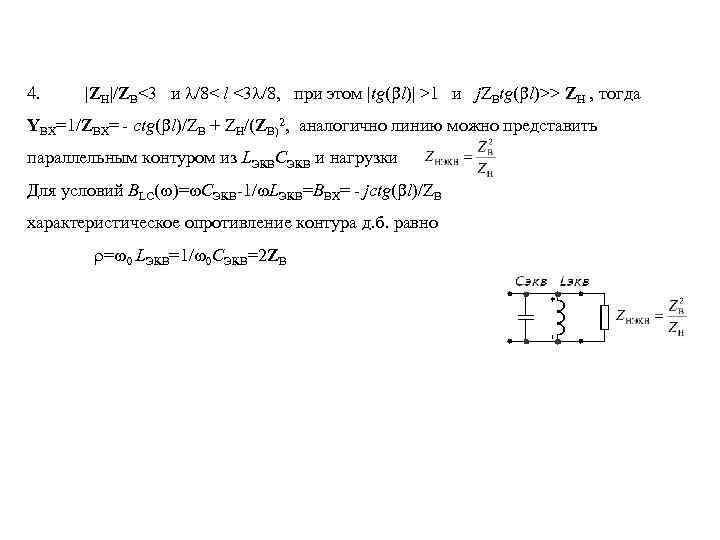 4. |ZН|/ZВ<3 и λ/8< l <3λ/8, при этом |tg(βl)| >1 и jZВtg(βl)>> ZН , тогда
YВХ=1/ZВХ= - ctg(βl)/ZВ + ZН/(ZВ)2, аналогично линию можно представить
параллельным контуром из LЭКВCЭКВ и нагрузки ZНЭКН = ZВ2/ZН
Для условий BLC(ω)=ωCЭКВ-1/ωLЭКВ=BВХ= - jctg(βl)/ZВ
характеристическое опротивление контура д.б. равно
ρ=ω0 LЭКВ=1/ω0 CЭКВ=2ZВ
Cэкв Lэкв
ZНЭКН = ZВ2/ZН